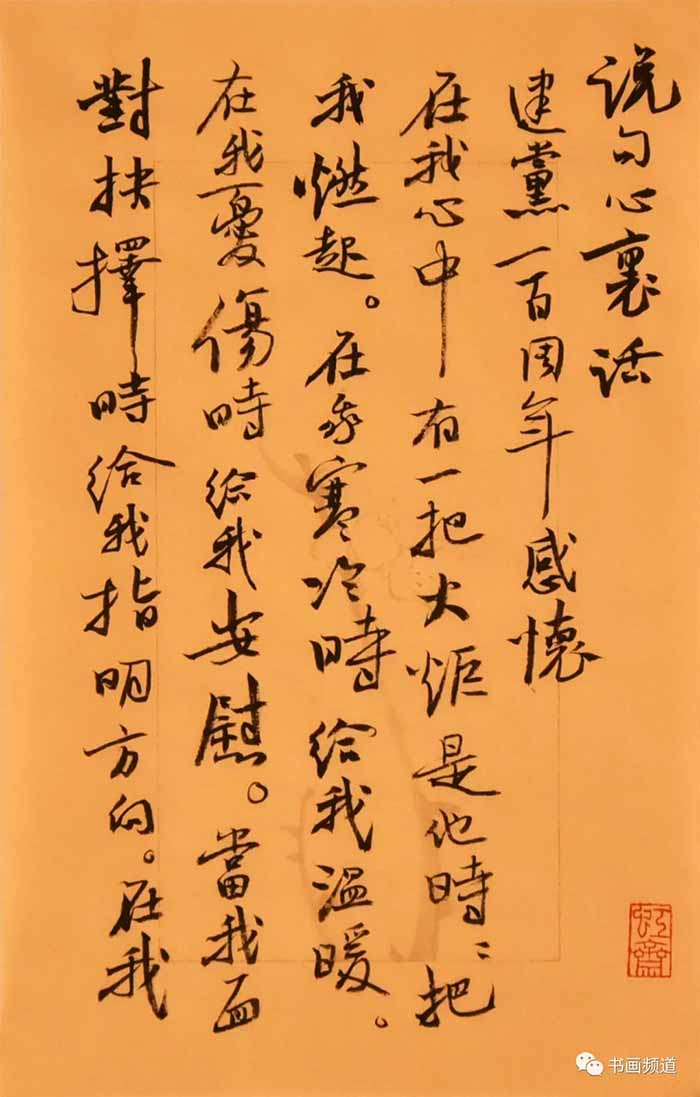 说句心裏话
建黨一百周年感懷
在我心中有一把火炬是他時〻把
我燃起。在我寒冷時给我温暖。
在我憂傷時给我安慰。當我面
對抉擇時给我指明方向。在我
虹齋
书画频道